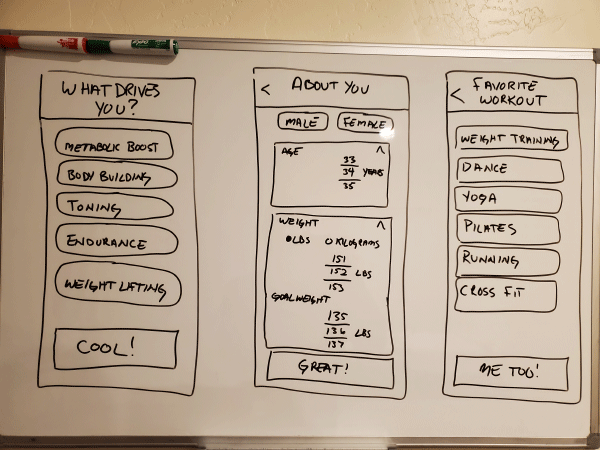 WHAT DRIVES
YOU?
METABOLIC BOOST
BODY BUILDING
TONING
ENDURANCE
WEIGHT LIFTING
COOL!
< ABOUT YOU
MALE FEMALE
AGE ^
33
34 YEARS
35
WEIGHT ^
LBS KILOGRAMS
151
152 LBS
153
GOAL WEIGHT
135
136 LBS
137
GREAT!
FAVORITE
< WORKOUT
WEIGHT TRAINING
DANCE
YOGA
PILATES
RUNNING
CROSS FIT
ME TOO!